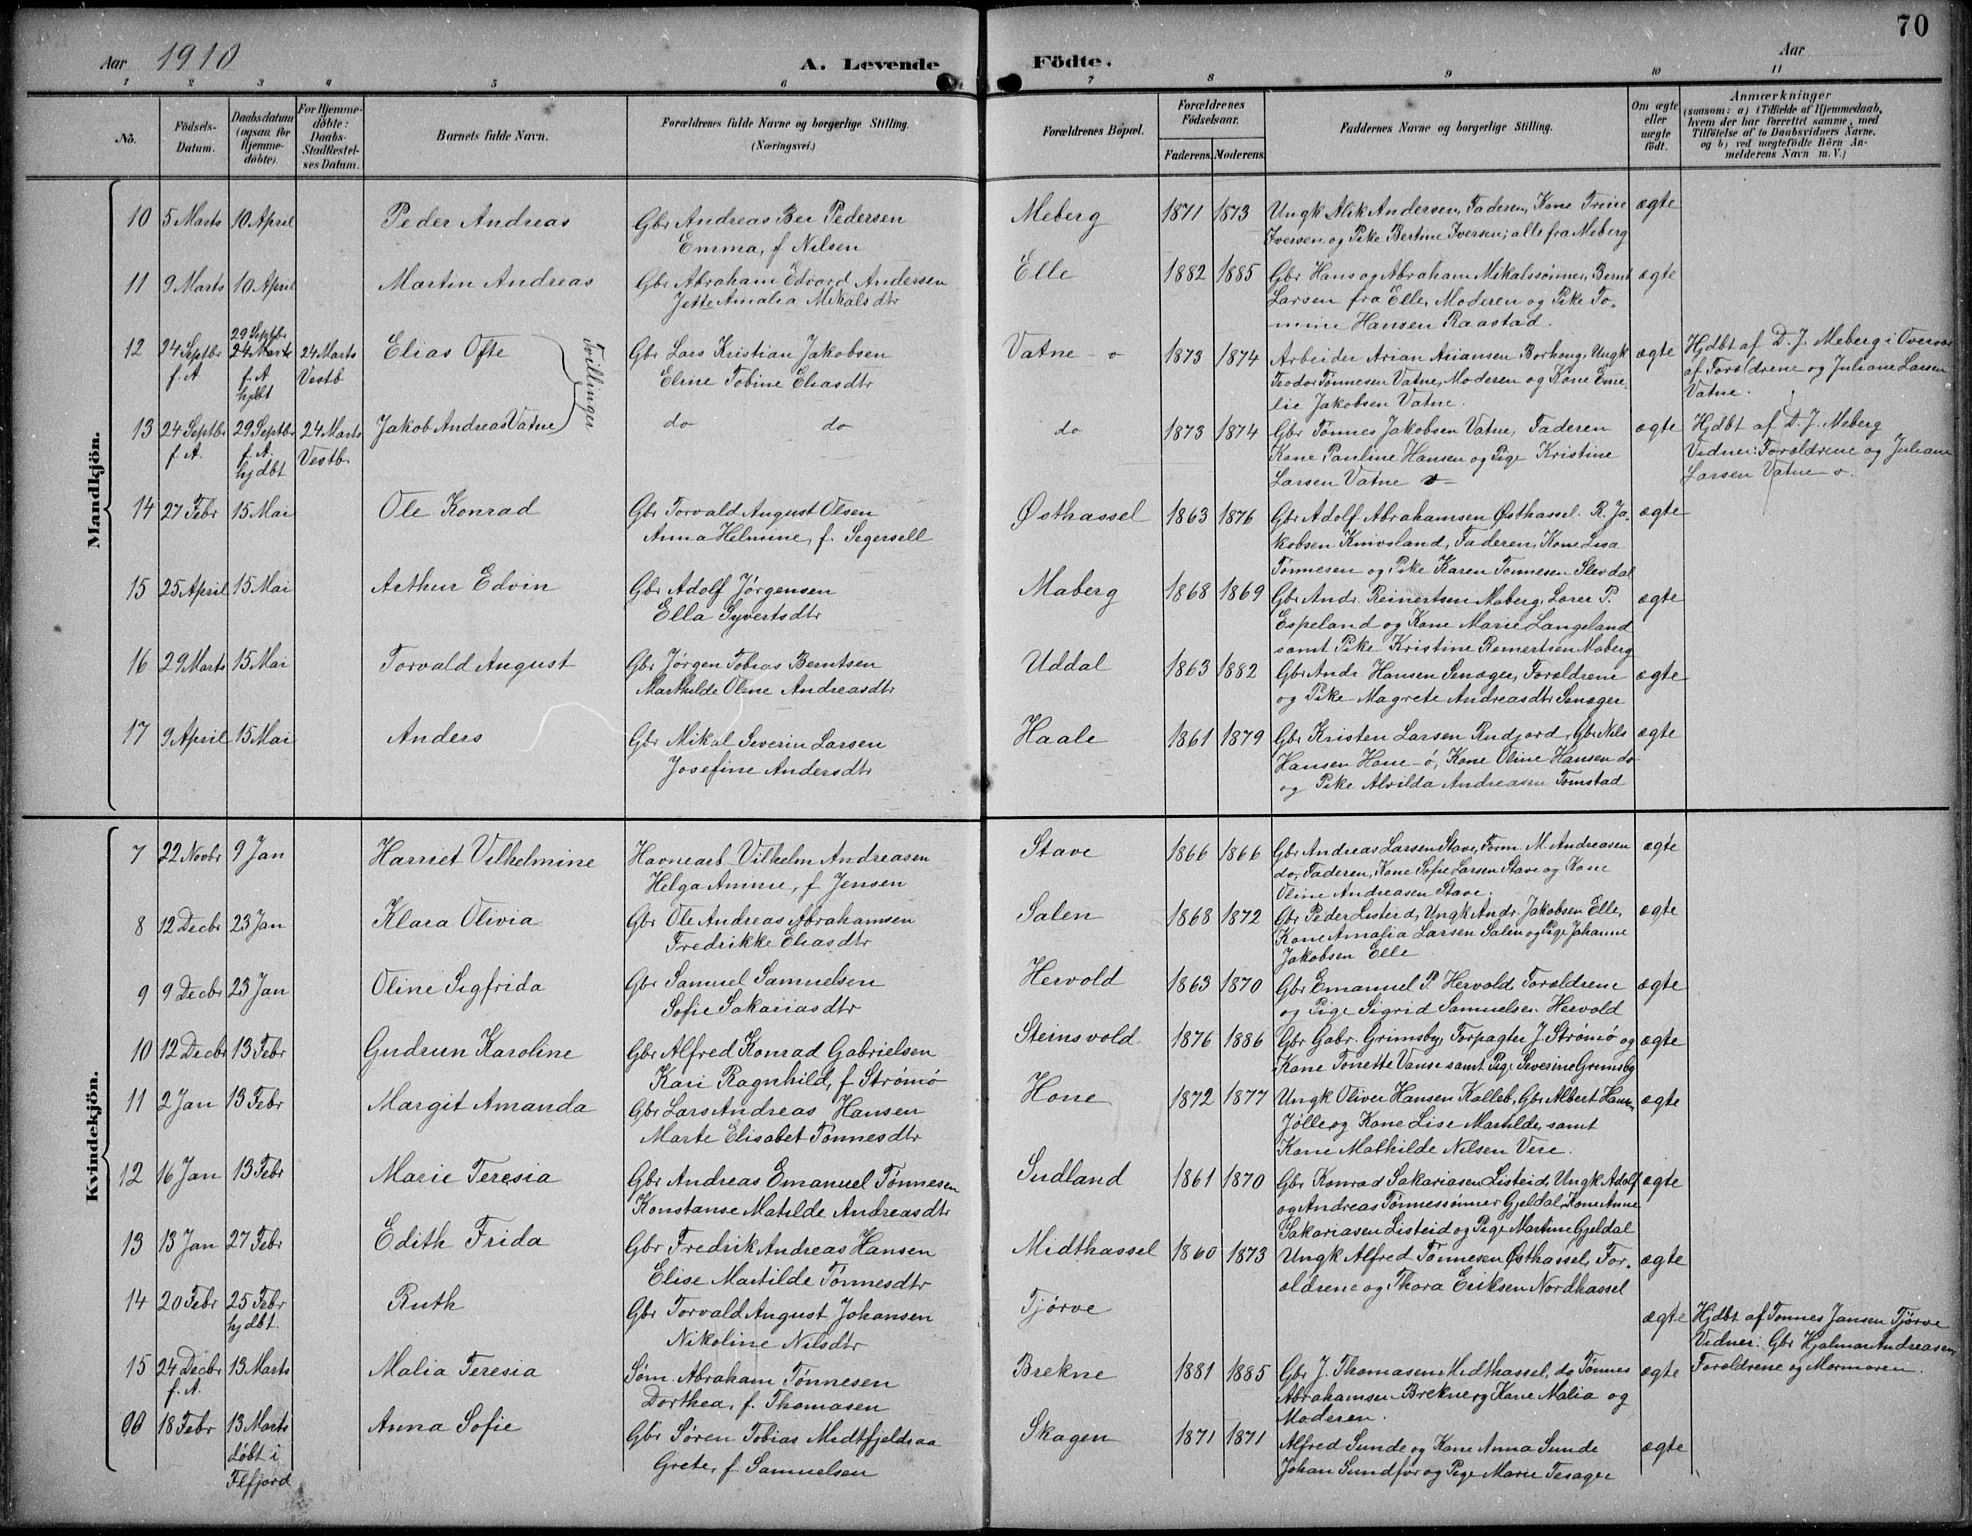 70
Aar 1910
A. Levende Födte.
Aar
1 2 3 4 5 6 7 8 9 10 11
No.
Födsels-Datum.
Daabsdatum (ogsaa for Hjemme-döbte).
For Hjemme-döbte: Daabs-Stadfæstel-ses Datum.
Barnets fulde Navn.
Forældrenes fulde Navne og borgerlige Stilling. (Næringsvei.)
Forældrenes Bopæl.
Forældrenes Födselsaar.
Faderens. Moderens.
Faddernes Navne og borgerlige Stilling.
Om ægte eller uægte födt.
Anmærkninger
(saasom: a) i Tilfælde af Hjemmedaab, hvem der har forrettet samme, med Tilföielse af to Daabsvidners Navne. og b) ved uægtefödte Börn Anmelderens Navn m. V.)
Mandkjön.
10 5 Marts 10 April Peder Andreas Gbr Andreas Ber Pedersen Meberg 1871 1873 Ungk Alik Andersen, Faderen, Kone Trine ægte
Emma, f Nilsen Iversen og Pike Bertine Iversen; alle fra Meberg
11 9 Marts 10 April Martin Andreas Gbr Abraham Edvard Andersen Elle 1882 1885 Gbr Hans og Abraham Mikalssønner, Bernt ægte
Jette Amalia Mikalsdtr Larsen fra Elle, Moderen og Pike To-
mine Hansen Raastad.
12 24 Septbr f. A 29 Septbr 24 Marts f. A hjdbt 24 Marts Vestb Elias Ofte Tvillinger Gbr Lars Kristian Jakobsen Vatne - o 1873 1874 Arbeider Arian Ariansen Borhoug, Ungk ægte Hjdbt af D. J. Meberg i Overvær
Eline Tobine Eliasdtr Teodor Tønnesen Vatne, Moderen og Kone Eme- af Forældrene og Juliane Larsen
lie Jakobsen Vatne. Vatne.
13 24 Septbr f. A. 29 Septbr f. A. hjdbt 24 Marts Vestb. Jakob Andreas Vatne do do do 1873 1874 Gbr Tønnes Jakobsen Vatne, Faderen ægte Hjdbt af D. J. Meberg
Kone Pauline Hansen og Pige Kristine Vidner: Forældrene og Juliane
Larsen Vatne o- Larsen Vatne o.
14 27 Febr 15 Mai Ole Konrad Gbr Torvald August Olsen Østhassel 1863 1876 Gbr Adolf Abrahamsen Østhassel. R. Ja- ægte
Anna Helmine, f. Segersell kobsen Knivsland, Faderen, Kone Lisa
Tønnesen og Pike Karen Tønnesen Slevdal
15 25 April 15 Mai Arthur Edvin Gbr Adolf Jørgensen Maberg 1868 1869 Gbr Andr. Reinertsen Maberg, Lærer P. ægte
Ella Syvertsdtr Espeland og Kone Marie Langeland
samt Pike Kristine Reinertsen Maberg
16 29 Marts 15 Mai Torvald August Gbr Jørgen Tobias Berntsen Uddal 1863 1882 Gbr Andr. Hansen Snæger, Forældrene ægte
Marthilde Oline Andreasdtr og Pike Magrete Andreasdtr Snæger
17 9 April 15 Mai Anders Gbr Mikal Severin Larsen Haale 1861 1879 Gbr Kristen Larsen Rudjord, Gbr Nils ægte
Josefine Andersdtr Hansen Hone - ö, Kone Oline Hansen do
og Pike Alvilda Andreasen Tomstad
Kvindekjön.
7 22 Novbr 9 Jan Harriet Vilhelmine Havnearb. Vilhelm Andreasen Stave 1866 1866 Gbr Andreas Larsen Stave, Form. M. Andreasen ægte
Helga Amme, f Jensen do, Faderen, Kone Sofie Larsen Stave og Kone
Oline Andreasen Stave.
8 12 Decbr 23 Jan Klara Olivia Gbr Ole Andreas Abrahamsen Salen 1868 1872 Gbr Peder Listeid, Ungk Andr. Jakobsen Elle, ægte
Fredrikke Eliasdtr Kone Amalia Larsen Salen og Pige Johanne
Jakobsen Elle
9 9 Decbr 23 Jan Oline Sigfrida Gbr Samuel Samuelsen Hervold 1863 1870 Gbr Emanuel P. Hervold, Forældrene ægte
Sofie Sakariasdtr og Pige Sigrid Samuelsen Hervold
10 12 Decbr 13 Febr Gudrun Karoline Gbr Alfred Konrad Gabrielsen Steinsvold 1876 1886 Gbr Gabr. Grimsby, Forpagter J. Strømø og ægte
Kari Ragnhild, f Strømø Kone Tonette Vanse samt Pige Severine Grimsby
11 2 Jan 13 Febr Margit Amanda Gbr Lars Andreas Hansen Hone 1872 1877 Ungk Oliver Hansen Kalleb, Gbr Albert Hansen, ægte
Marte Elisabet Tønnesdtr Jølle og Kone Lise Martilde, samt
Kone Mathilde Nilsen Vere.
12 16 Jan 13 Febr Marie Teresia Gbr Andreas Emanuel Tønnesen Sudland 1861 1870 Gbr Konrad Sakariasen Listeid, Ungk Adolf ægte
Konstanse Matilde Andreasdtr og Andreas Tønnessønner Gjeldal, Kone Anne
Sakariasen Listeid og Pige Martine Gjeldal
13 13 Jan 27 Febr Edith Frida Gbr Fredrik Andreas Hansen Midthassel 1860 1873 Ungk Alfred Tønnesen Østhassel, For- ægte
Elise Martilde Tønnesdtr ældrene og Thora Eriksen Nordhassel
14 20 Febr 25 Febr hjdbt. Ruth Gbr Torvald August Johansen Tjørve ægte Hjdbt af Tønnes Jansen Tjørve
Nikoline Nilsdtr Vidner: Gbr Hjalmar Andreasen,
Forældrene og Mormoren.
15 24 Decbr f. A. 13 Marts Malia Teresia Søm. Abraham Tønnesen Brekne 1881 1885 Gbr J. Thomasen Midthassel, do Tønnes ægte
Dorthea, f. Thomasen Abrahamsen Brekne og Kone Malia og
Moderen.
18 Febr 13 Marts døbt i Flfjord Anna Sofie Gbr Søren Tobias Midtfjeldsaa Skagen 1871 1871 Alfred Sunde og Kone Anna Sunde ægte
Grete, f. Samuelsen Johan Sundfør og Pige Marie Tesager